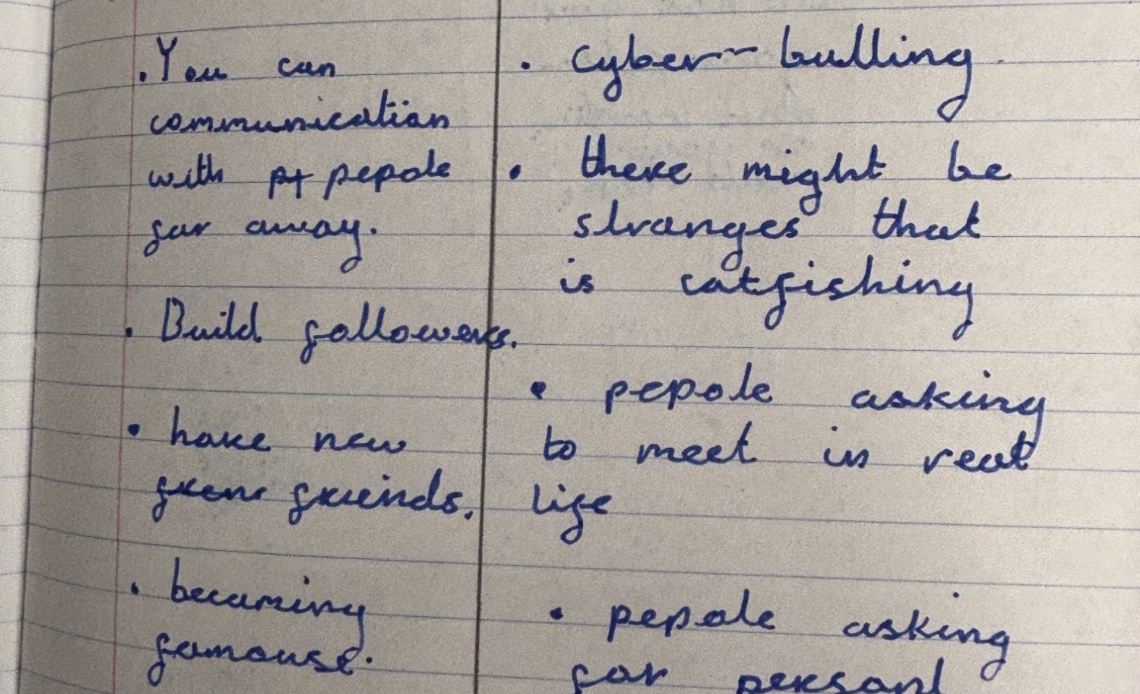 . You can
communication
with pt pepole
far away.
. Build followers.
. have new
frens friends.
. becoming
famouse.
. Cyber-bulling
. there might be
stranges that
is catfishing
. pepole asking
to meet in real
life
. pepole asking
for personl